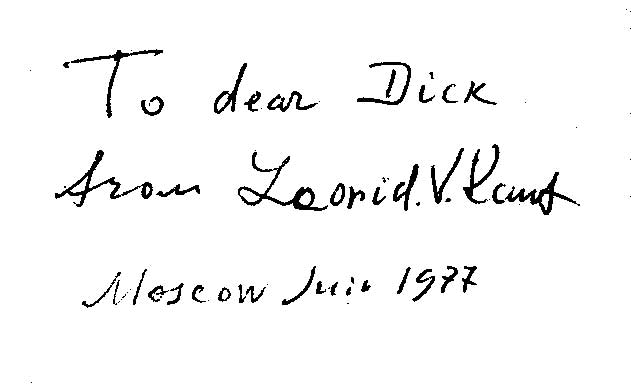 To dear Dick
from Leonid.V.Kant
Moscow Juin 1977